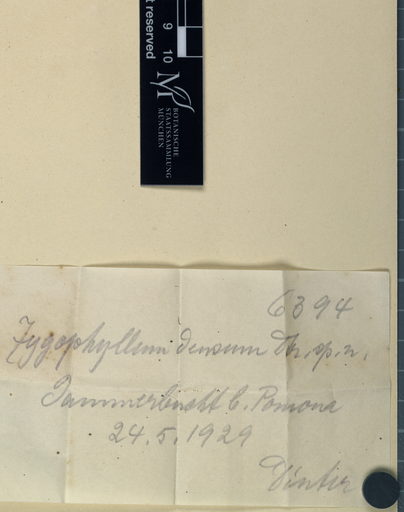 t reserved
9 10
M
BOTANISCHE
STAATSSAMMLUNG
MÜNCHEN
6394
Zygophyllum densum Dtr. sp. n.
Jammerbucht b. Pomona
24.5.1929
Dinter